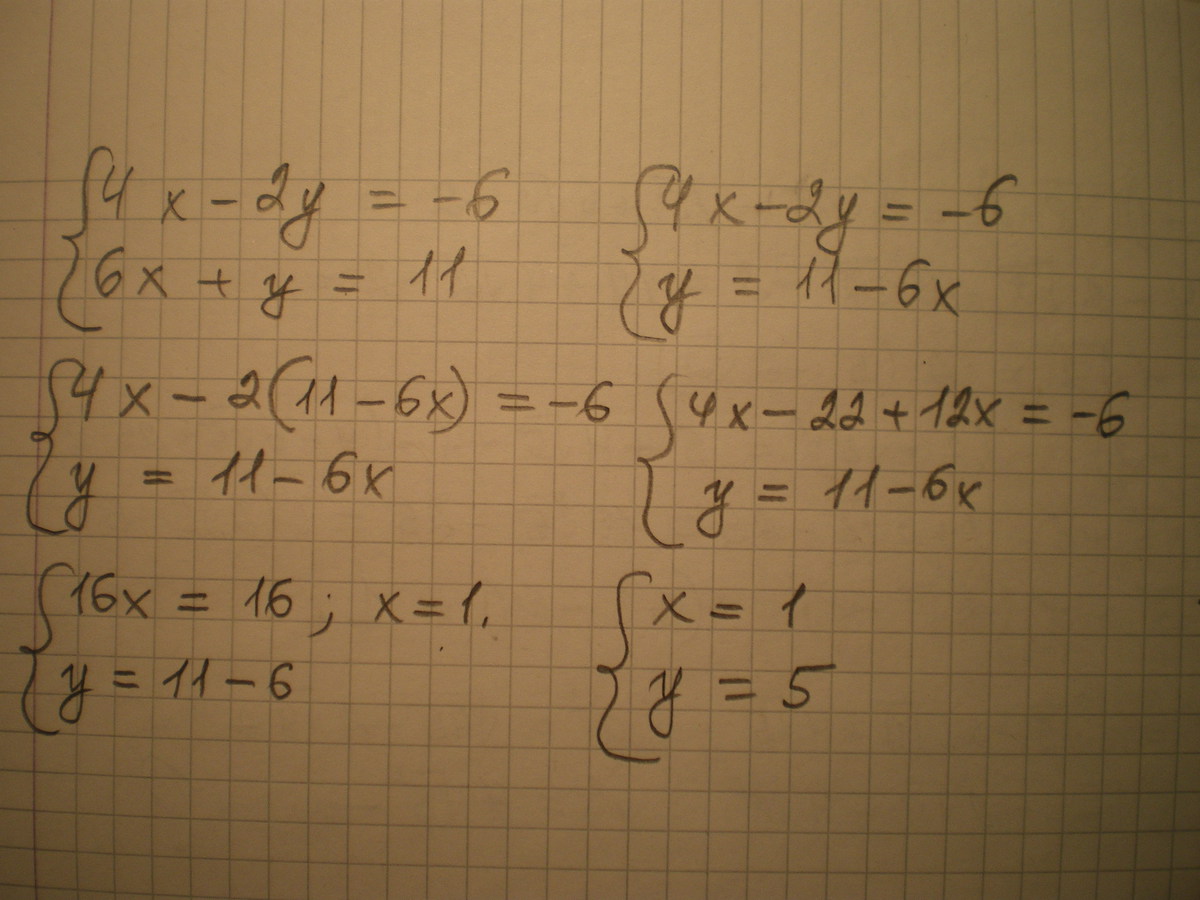 4x - 2y = -6
6x + y = 11
4x - 2y = -6
y = 11 - 6x
4x - 2(11 - 6x) = -6
y = 11 - 6x
4x - 22 + 12x = -6
y = 11 - 6x
16x = 16; x = 1.
y = 11 - 6
x = 1
y = 5